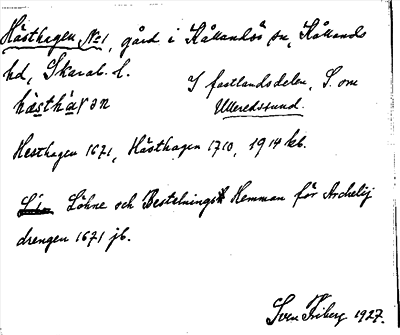 Hästhagen No 1, gård i Kållandsö sn, Kållands
hd, Skarab. l.
I fastlandsdelen, S. om
Ulleredssund.
hästhagen
Hesthagen 1671, Hästhagen 1710, 1914 kb.
Löhne och Bestelnings Hemman för Archelij
drengen 1671 jb.
Sven Friberg 1927.